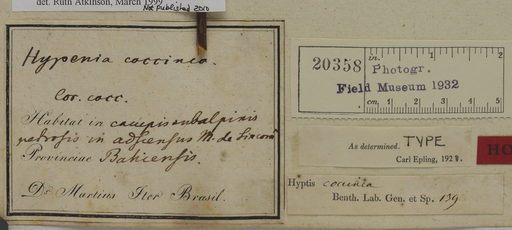 det. Ruth Atkinson, March 1999
Not published 2010
Hypenia coccinea.
Cor. cocc.
Habitat in campis subalpinis
pedrosis in adscensus M. de Sincorá
Provinciae Bahiensis.
Dr Martius Iter Brasil.
20358
in. 1 2
Photogr.
Field Museum 1932
cm. 1 2 3 4 5
As determined. TYPE
Carl Epling, 1928.
HO
Hyptis coccinea
Benth. Lab. Gen. et Sp. 139